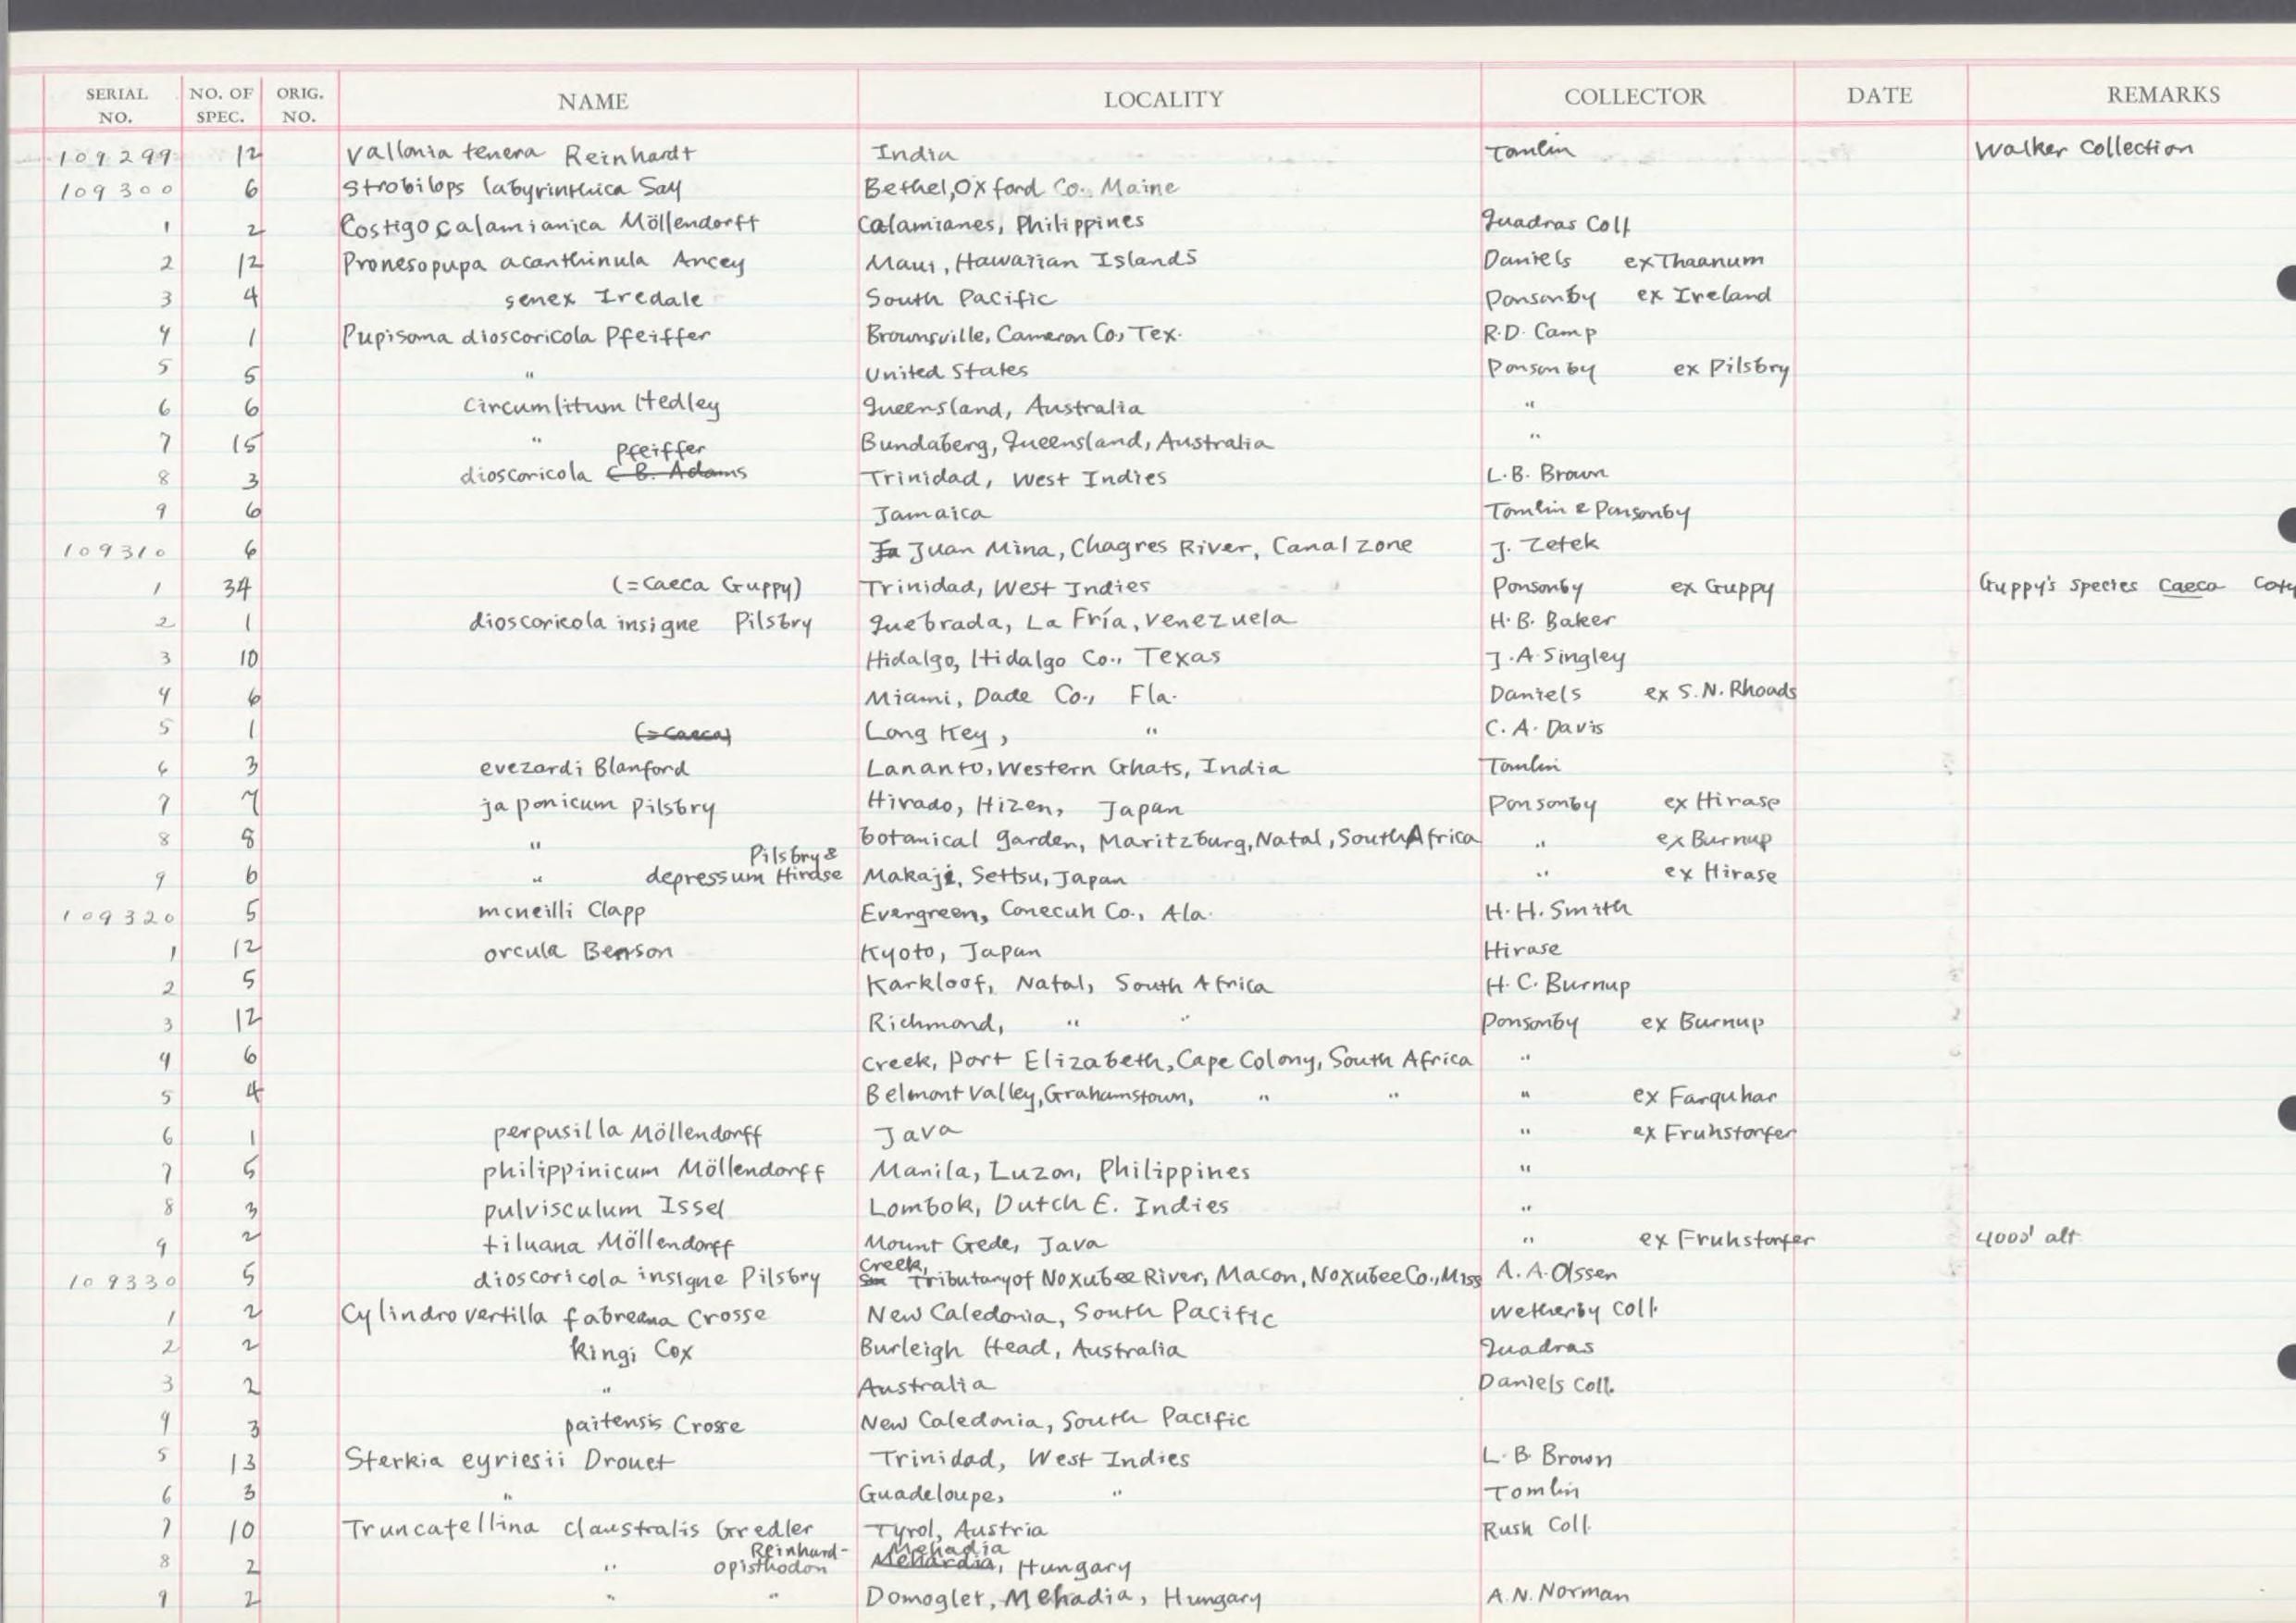 SERIAL NO. NO. OF SPEC. ORIG. NO. NAME LOCALITY COLLECTOR DATE REMARKS
109299 12 Vallonia tenera Reinhardt India Tomlin Walker Collection
109300 6 Strobilops labyrinthica Say Bethel, Oxford Co., Maine
1 2 Costigo calamianica Möllendorff Calamianes, Philippines Quadras Coll
2 12 Pronesopupa acanthinula Ancey Maui, Hawaiian Islands Daniels ex Thaanum
3 4 senex Iredale South Pacific Ponsonby ex Ireland
4 1 Pupisoma dioscoricola Pfeiffer Brownsville, Cameron Co., Tex. R.D. Camp
5 5 " United States Ponsonby ex Pilsbry
6 6 circumlitum Hedley Queensland, Australia "
7 15 " Bundaberg, Queensland, Australia "
8 3 dioscoricola C B. Adams Pfeiffer Trinidad, West Indies L.B. Brown
9 6 Jamaica Tomlin & Ponsonby
109310 6 Ja Juan Mina, Chagres River, Canal Zone J. Zetek
1 34 (=caeca Guppy) Trinidad, West Indies Ponsonby ex Guppy Guppy's species caeca
2 1 dioscoricola insigne Pilsbry Quebrada, La Fría, Venezuela H.B. Baker
3 10 Hidalgo, Hidalgo Co., Texas J.A Singley
4 6 Miami, Dade Co., Fla. Daniels ex S.N. Rhoads
5 1 (=caeca) Long Key, " C.A. Davis
6 3 evezardi Blanford Lananto, Western Ghats, India Tomlin
7 7 japonicum Pilsbry Hirado, Hizen, Japan Ponsonby ex Hirase
8 8 " botanical garden, Maritzburg, Natal, South Africa " ex Burnup
9 6 " depressum Pilsbry & Hirase Makaji, Settsu, Japan " ex Hirase
109320 5 mcneilli Clapp Evergreen, Conecuh Co., Ala. H.H. Smith
1 12 orcula Benson Kyoto, Japan Hirase
2 5 Karkloof, Natal, South Africa H.C. Burnup
3 12 Richmond, " " Ponsonby ex Burnup
4 6 Creek, Port Elizabeth, Cape Colony, South Africa "
5 4 Belmont Valley, Grahamstown, " " " ex Farquhar
6 1 perpusilla Möllendorff Java " ex Fruhstorfer
7 5 philippinicum Möllendorff Manila, Luzon, Philippines "
8 3 pulvisculum Issel Lombok, Dutch E. Indies "
9 2 tiluana Möllendorff Mount Gede, Java " ex Fruhstorfer 4000' alt
109330 5 dioscoricola insigne Pilsbry Creek, Tributary of Noxubee River, Macon, Noxubee Co., Miss A.A. Olssen
1 2 Cylindrovertilla fabreana Crosse New Caledonia, South Pacific Wetherby Coll.
2 2 kingi Cox Burleigh Head, Australia Quadras
3 2 " Australia Daniels Coll.
4 3 paitensis Crosse New Caledonia, South Pacific
5 13 Sterkia eyriesii Drouet Trinidad, West Indies L.B. Brown
6 3 " Guadeloupe, " Tomlin
7 10 Truncatellina claustralis Gredler Tyrol, Austria Rush Coll.
8 2 " opisthodon Reinhard- Mehardia Mehadia, Hungary
9 2 " " Domoglet, Mehadia, Hungary A.N. Norman